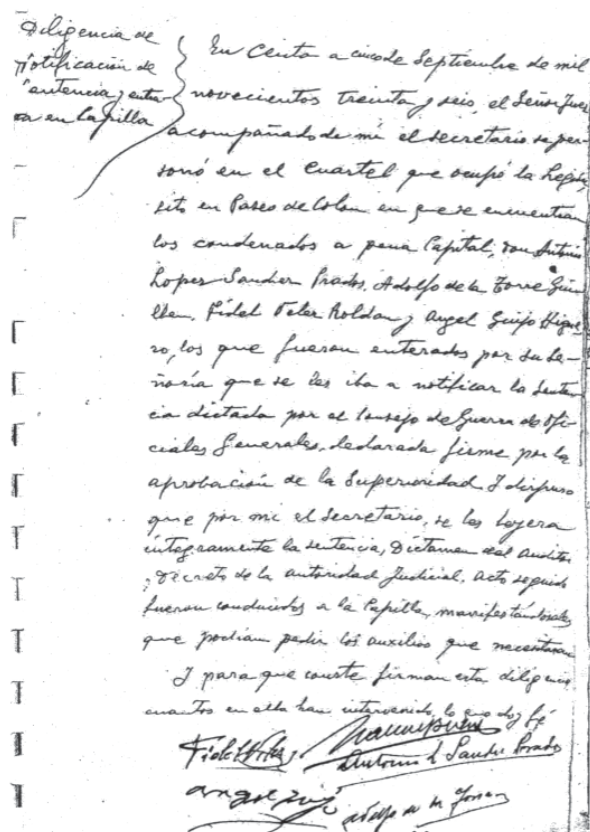 Diligencia de
notificación de
sentencia y entra-
da en Capilla
En Ceuta a cinco de Septiembre de mil
novecientos treinta y seis, el Señor Juez
acompañado de mi el secretario se per-
sonó en el Cuartel que ocupó la Legión,
sito en Paseo de Colon en que se encuentran
los condenados a pena Capital, don Antonio
Lopez Sandier Prados, Adolfo de la Torre Gui-
llen, Fidel Velez Roldan y Angel Guijo Higue-
ro, los que fueron enterados por su Se-
ñoría que se les iba a notificar la Senten-
cia dictada por el Consejo de Guerra de Ofi-
ciales Generales, declarada firme por la
aprobación de la Superioridad. Y dispuso
que por mi el Secretario, se les leyera
integramente la sentencia, Dictamen del Auditor
y Decreto de la autoridad Judicial. Acto seguido
fueron conducidos a la Capilla, manifestandoseles
que podian pedir los auxilios que necesitaran
Y para que conste firman esta diligencia
cuantos en ella han intervenido, lo que doy fé
Fidel Velez
Antonio L Sandier Prados
Angel Guijo
Adolfo de la Torre